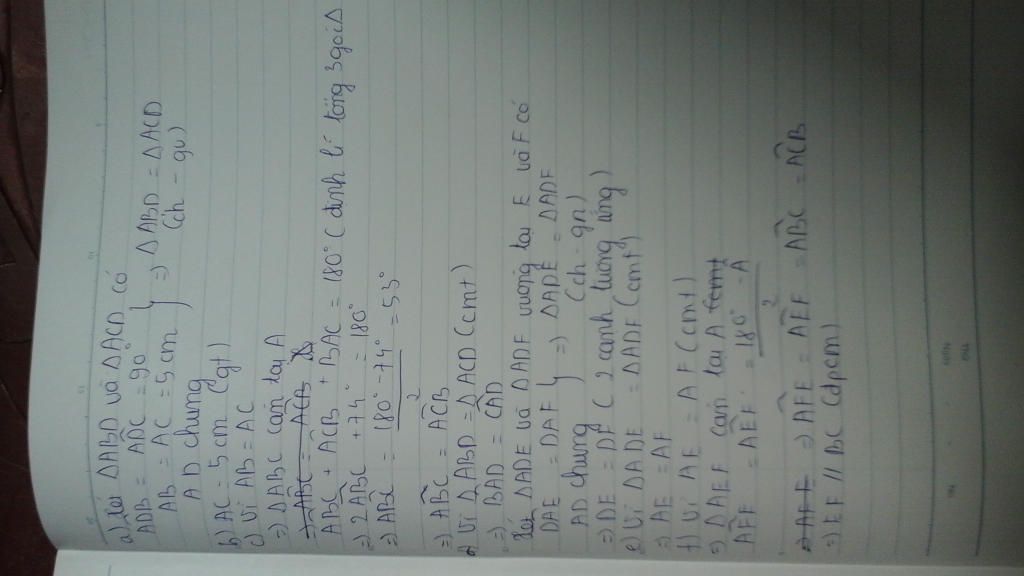 a) Xét ΔABD và ΔACD có
ADB = ADC = 90°
AB = AC = 5cm } => ΔABD = ΔACD
AD chung (ch - gv)
b) AC = 5cm (gt)
c) Vì AB = AC
=> ΔABC cân tại A
=> ABC = ACB
ABC + ACB + BAC = 180° (định lí tổng 3 góc Δ
=> 2ABC + 74° = 180°
=> ABC = 180° - 74° = 53°
2
=> ABC = ACB
d) Vì ΔABD = ΔACD (cmt)
=> BAD = CAD
Xét ΔADE và ΔADF vuông tại E và F có
DAE = DAF } => ΔADE = ΔADF
AD chung (ch - gn)
=> DE = DF (2 cạnh tương ứng)
e) Vì ΔADE = ΔADF (cmt)
=> AE = AF
f) Vì AE = AF (cmt)
=> ΔAEF cân tại A cmt
AFE = AEF = 180° - A
2
=> AFE => AFE = AEF = ABC = ACB
=> EF // BC (đpcm)